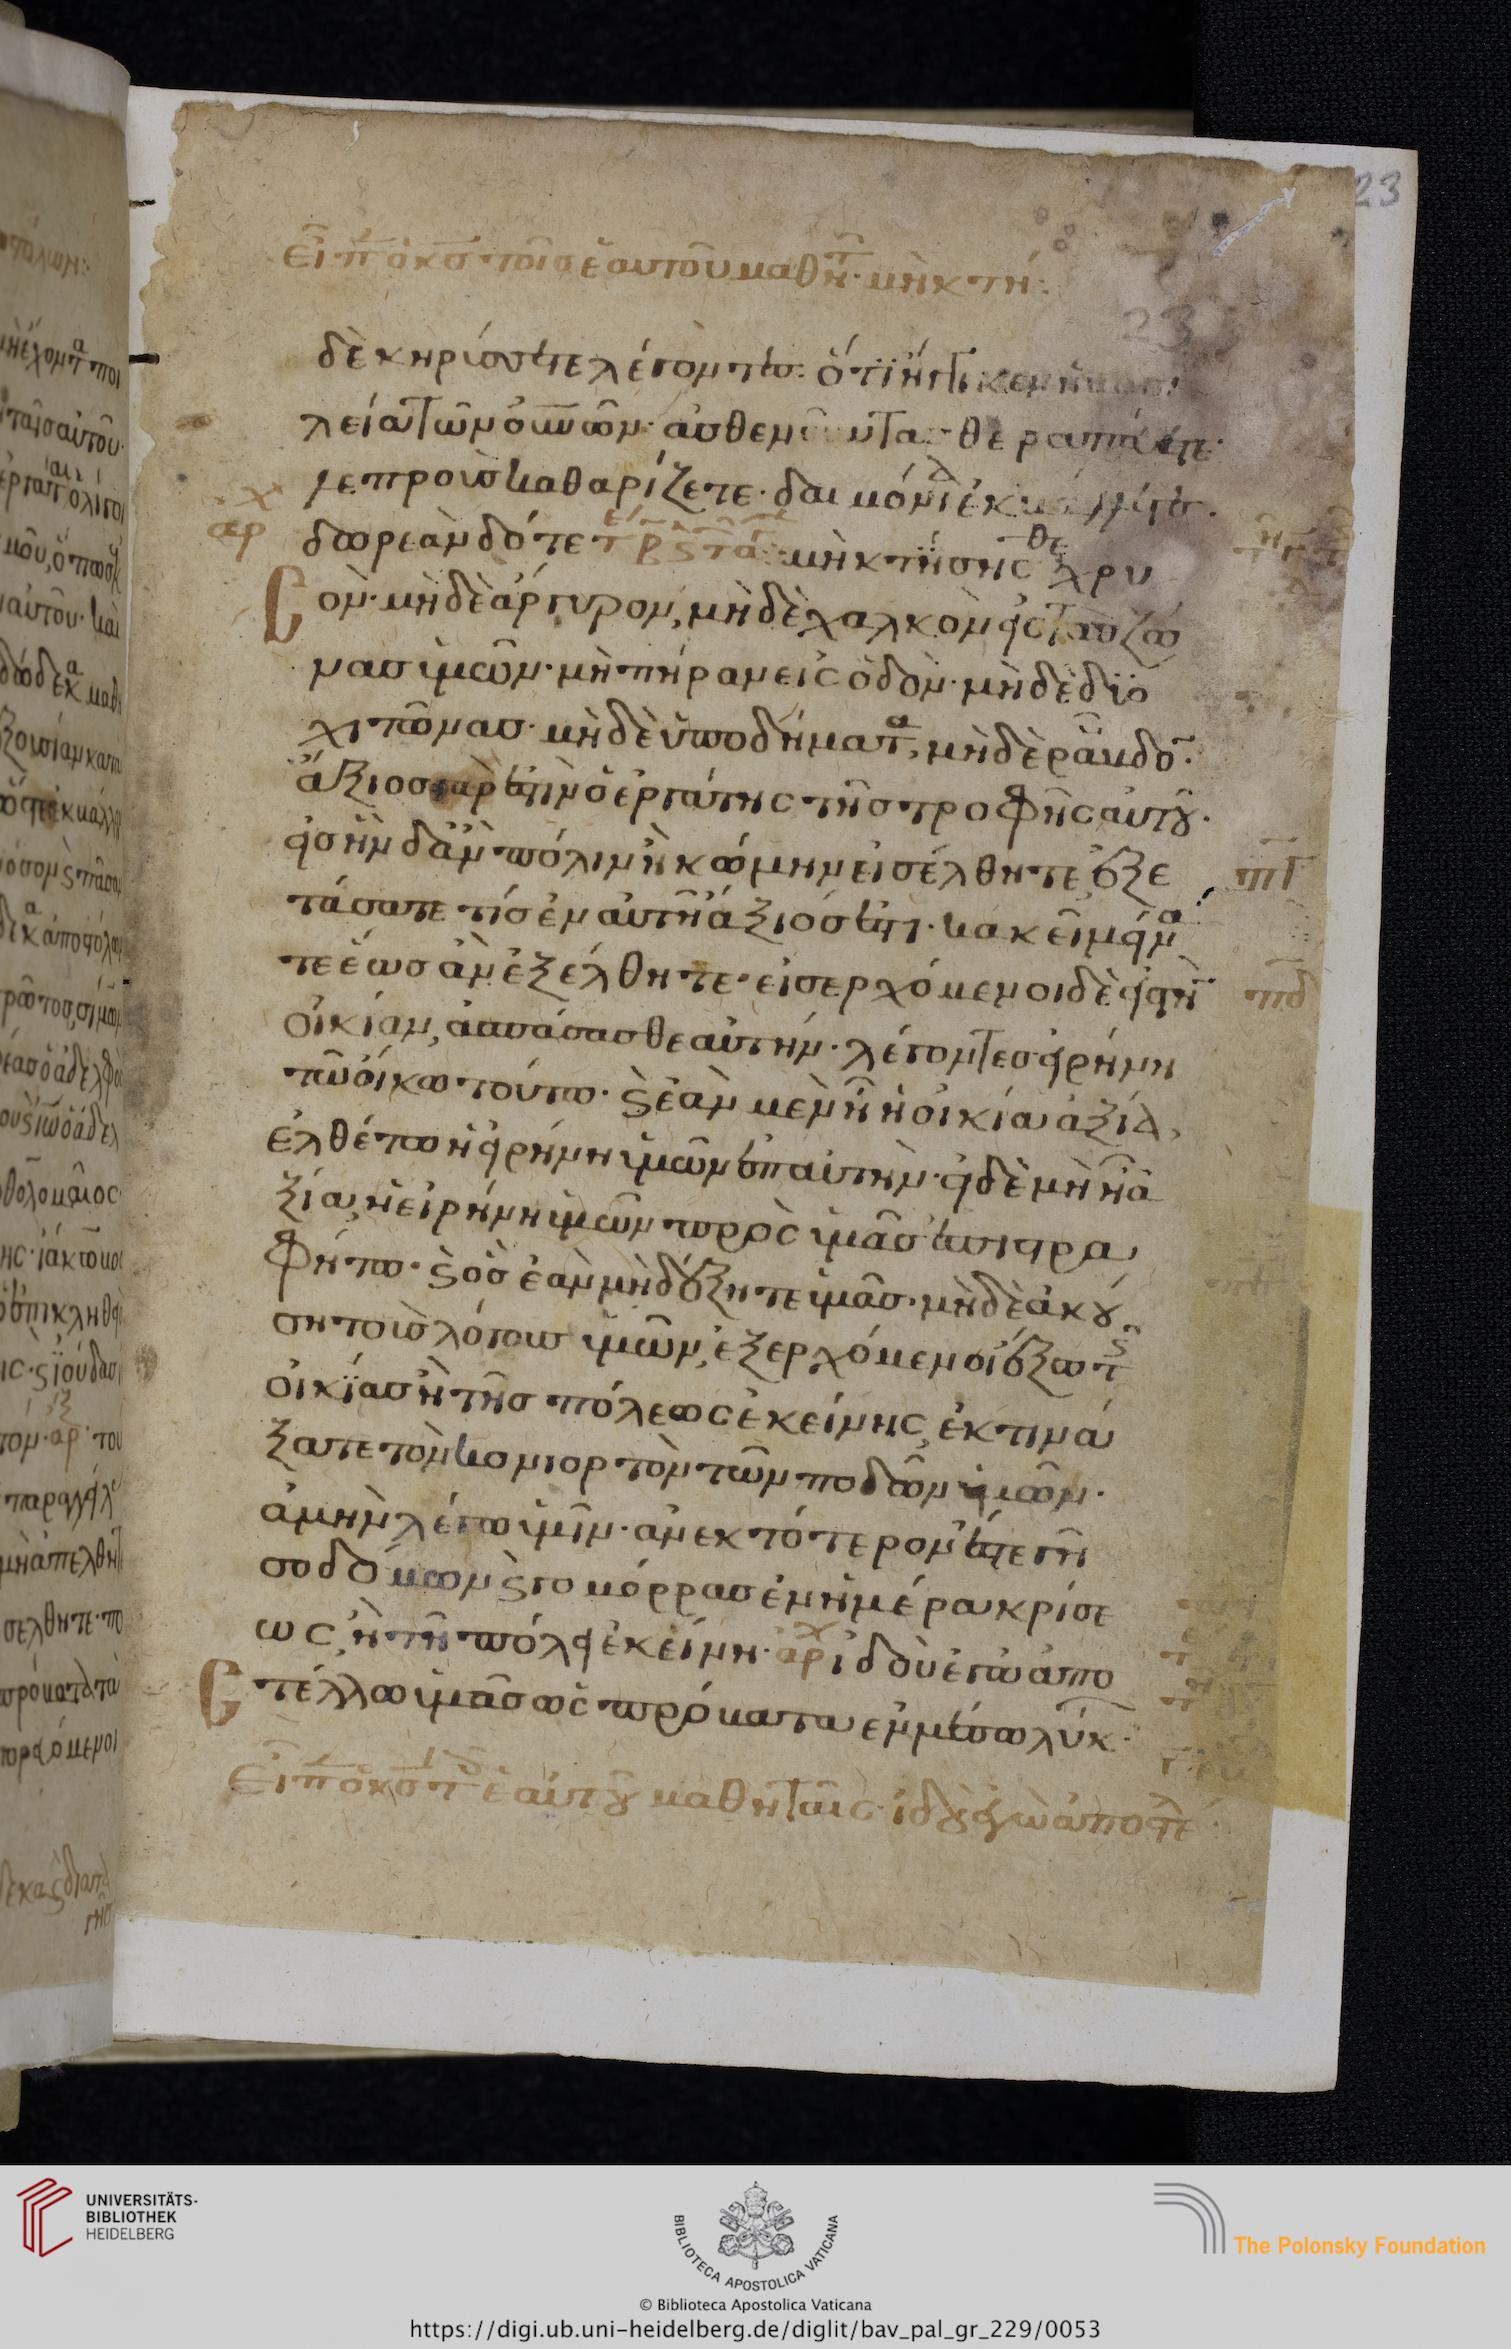 εἶπ ὁ κς τοῖς ἑαυτοῦ μαθητ· μὴ κτή:
δὲ κηρύσσετε λέγοντες: ὅτι ἤγγικεν ἡ βασι
λεία τῶν οὐνῶν· ἀσθενοῦντας θεραπεύετε·
λεπροὺς καθαρίζετε· δαιμόνια ἐκβάλλετε.
δωρεὰν δότε μὴ κτήσησθε χρυ
σὸν· μὴδὲ ἄργυρον, μὴδὲ χαλκὸν εἰς τὰς ζώ
νας ὑμῶν· μὴ πήραν εἰς ὁδὸν· μὴδὲ δύο
χιτῶνας· μὴδὲ ὑποδήματα, μὴδὲ ράβδο·
ἄξιος γάρ ἐστιν ὁ ἐργάτης τῆς τροφῆς αὐτοῦ.
εἰς ἣν δἂν πόλιν ἢ κώμην εἰσέλθητε, ἐξε
τάσατε τίς ἐν αὐτῇ ἄξιός ἐστι· κακεῖ μείνα
τε ἕως ἂν ἐξέλθητε· εἰσερχόμενοι δὲ εἰς τὴν
οἰκίαν, ἀσπάσασθε αὐτήν· λέγοντες εἰρήνη
τῶ οἴκω τούτω· ϗ ἐὰν μὲν ᾖ ἡ οἰκία ἀξία,
ἐλθέτω ἡ εἰρήνη ὑμῶν ἐπ αὐτὴν· εἰ δὲ μὴ ᾖ ἀ
ξία, ἡ εἰρήνη ὑμῶν πρὸς ὑμᾶς ἐπιστρα
φήτω· ϗ ὃς ἐὰν μὴ δέξητε ὑμᾶς· μὴδὲ ἀκού
ση τοὺς λόγους ὑμῶν, ἐξερχόμενοι ἔξω τῆς
οἰκίας ἢ τῆς πόλεως ἐκείνης, ἐκτινά
ξατε τὸν κονιορτὸν τῶν ποδῶν ὑμῶν·
ἀμὴν λέγω ὑμῖν· ἀνεκτότερον ἔσται γῆ
σοδόμων ϗ γομόρρας ἐν ἡμέρα κρίσε
ως, ἢ τῇ πόλει ἐκείνη· ἀρχ ἰδοὺ ἐγὼ ἀπο
στέλλω ὑμᾶς ὡς πρόβατα ἐν μέσω λύκ·
Εἶπ ὁ κς τοῖς ἑαυτοῦ μαθηταῖς· ἰδοὺ ἐγὼ ἀποστέλ
αρχ
πγ
πδ
23
23
UNIVERSITÄTS-
BIBLIOTHEK
HEIDELBERG
BIBLIOTECA APOSTOLICA VATICANA
The Polonsky Foundation
© Biblioteca Apostolica Vaticana
https://digi.ub.uni-heidelberg.de/diglit/bav_pal_gr_229/0053